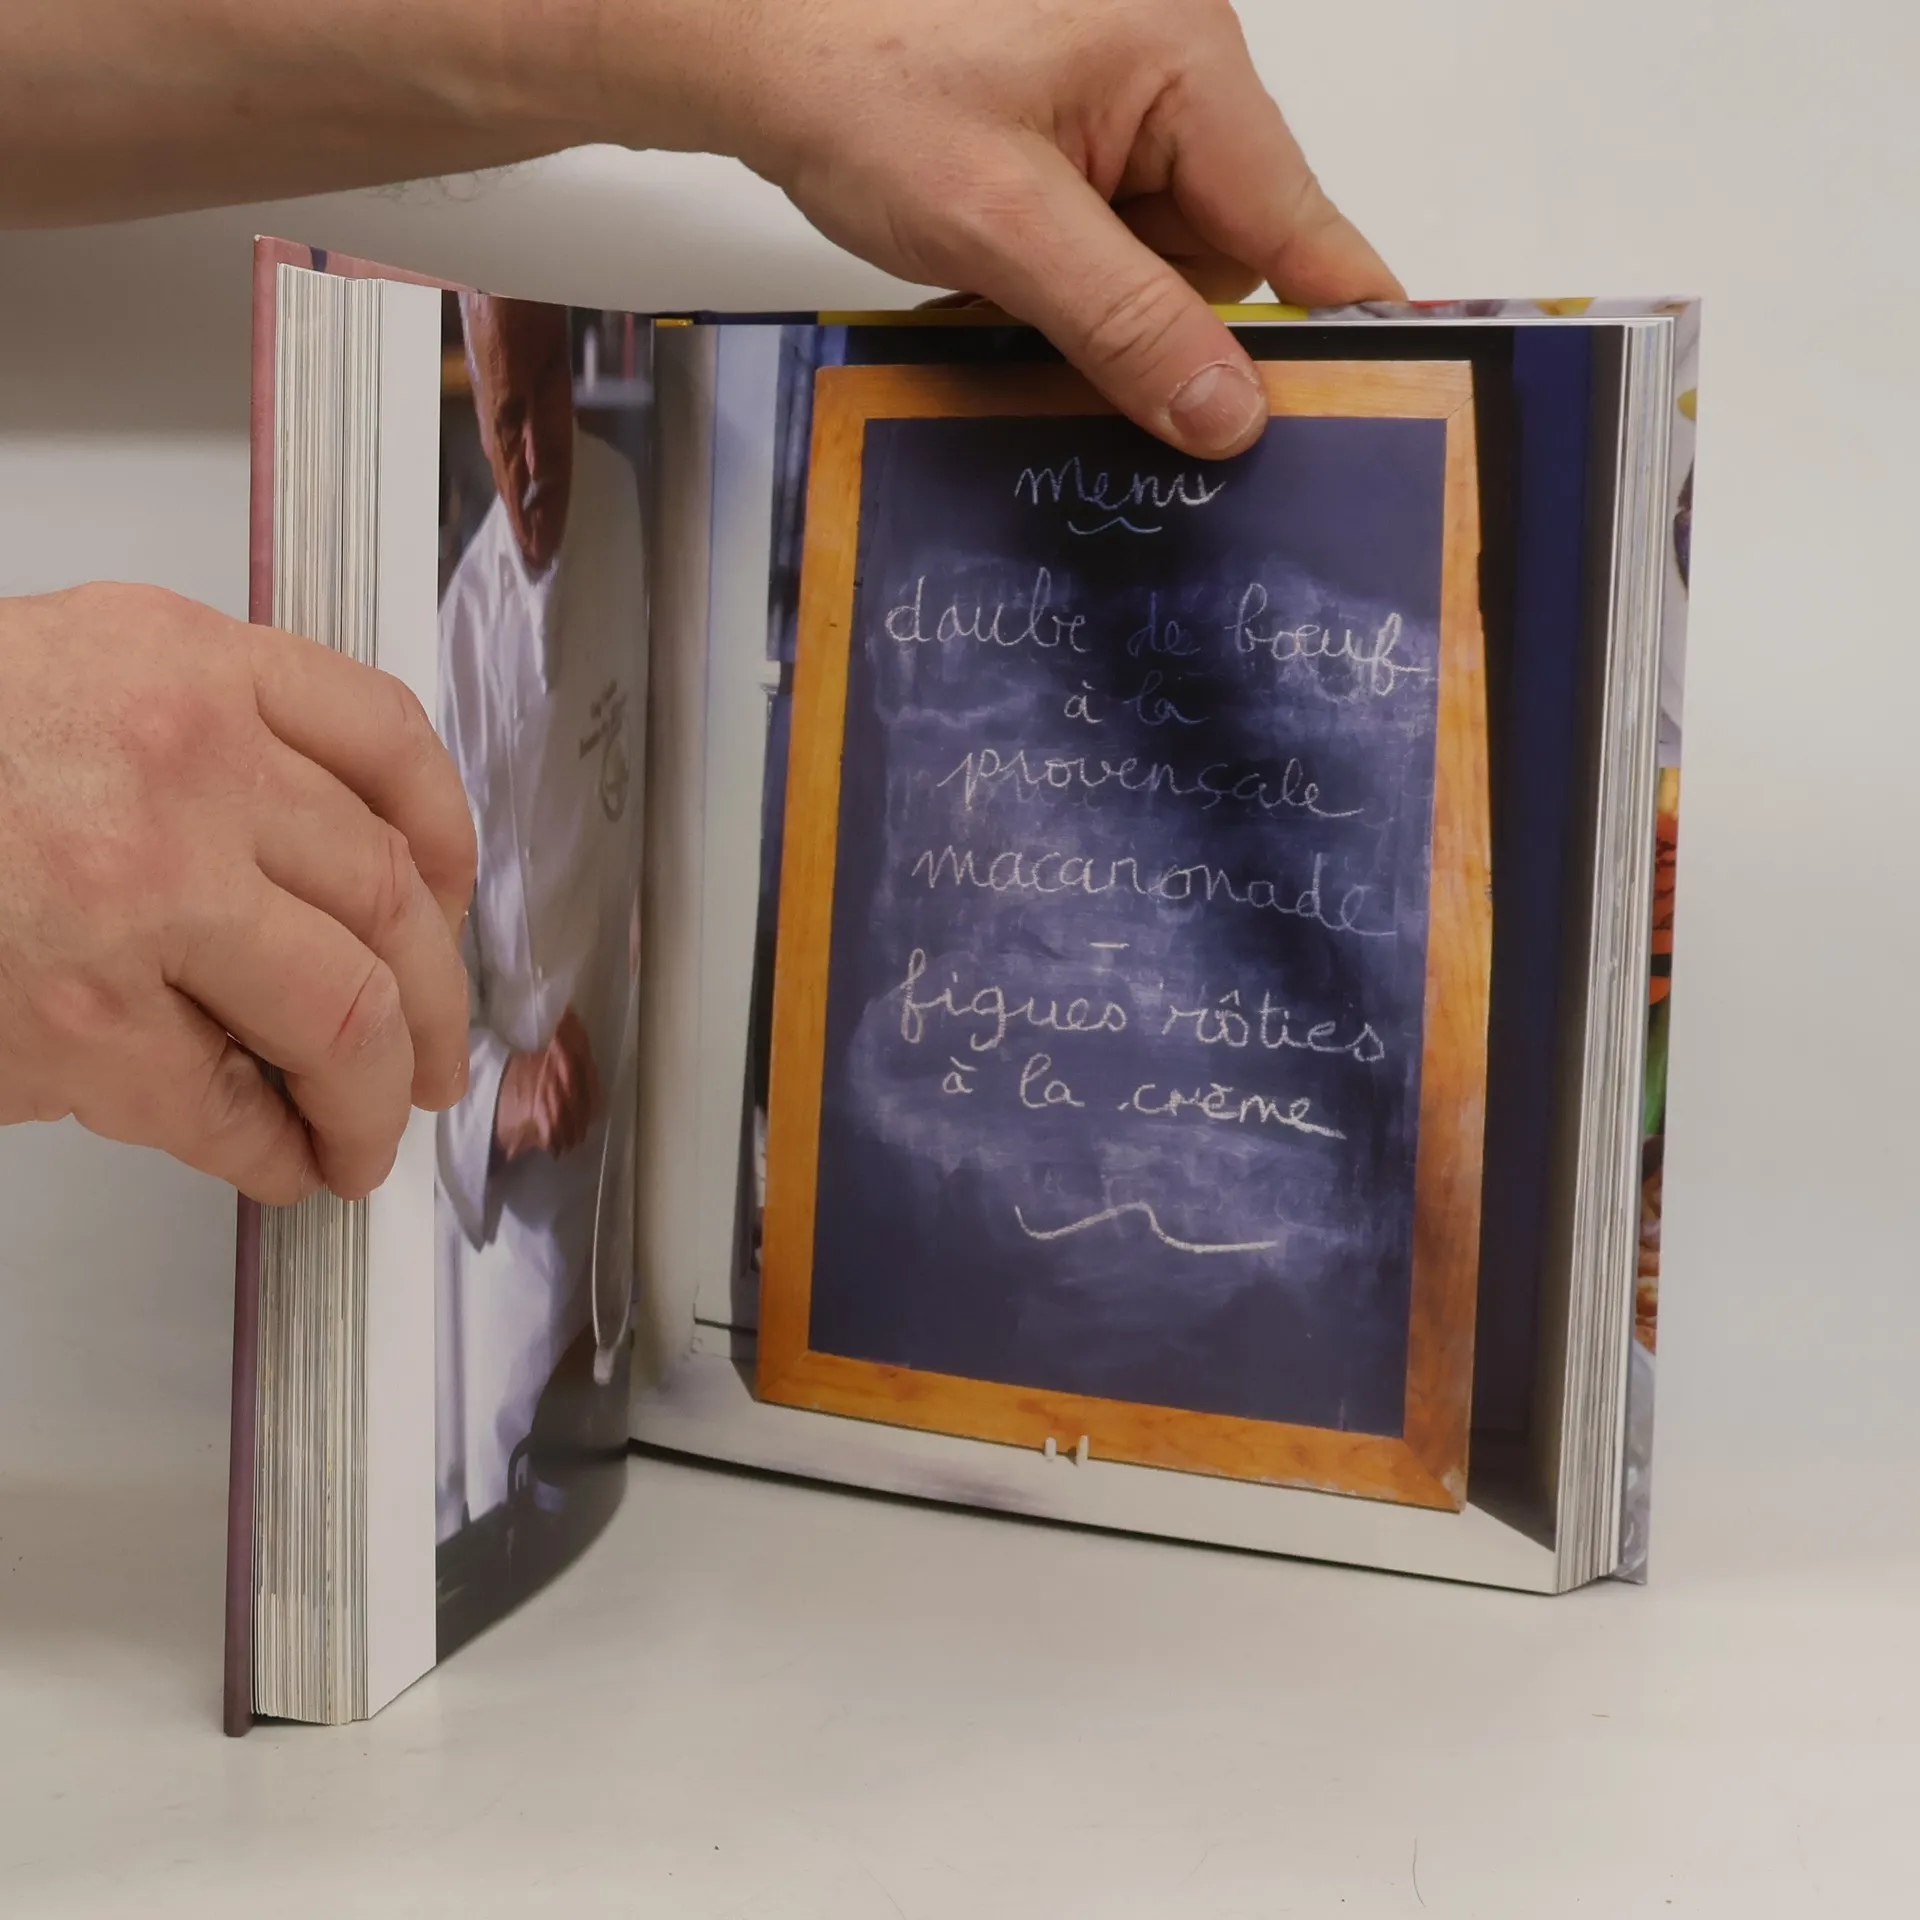 menu
daube de bœuf
à la
provençale
macaronade
figues rôties
à la crème